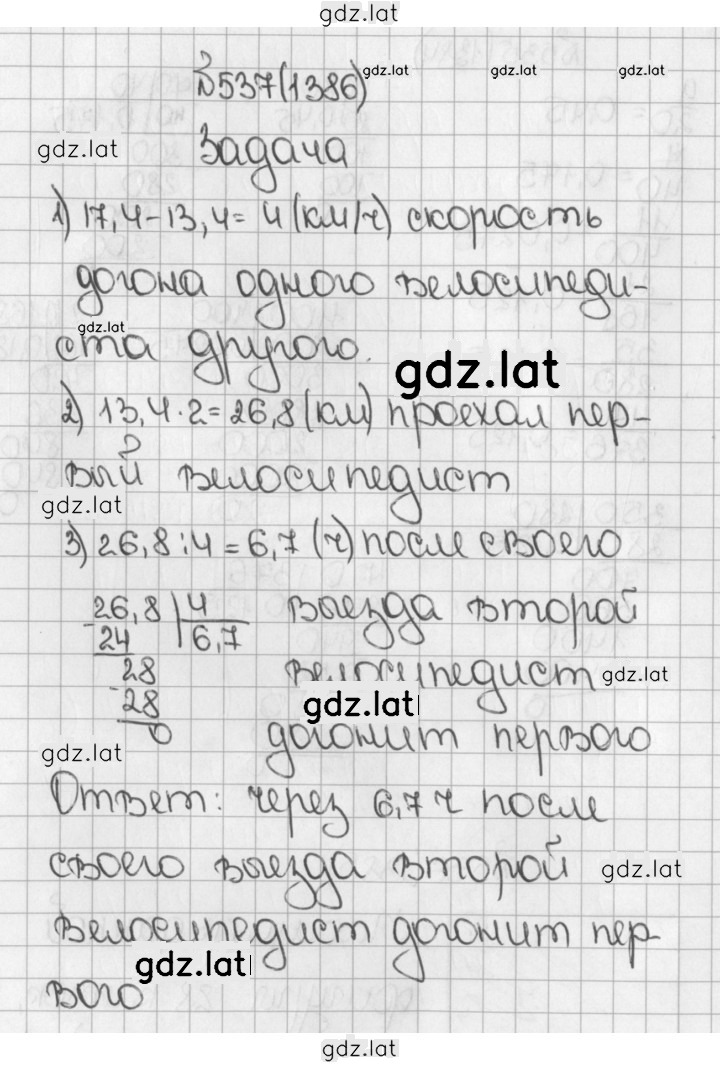 gdz.lat
№537(1386) gdz.lat gdz.lat gdz.lat
gdz.lat Задача
1) 17,4-13,4=4(км/ч) скорость
догона одного велосипеди-
gdz.lat
ста другого.
gdz.lat
2) 13,4·2=26,8(км) проехал пер-
вый велосипедист
gdz.lat
3) 26,8:4=6,7(ч) после своего
26,8 | 4 выезда второй
- 24 6,7
28 велосипедист gdz.lat
- 28 gdz.lat
0 догонит первого
gdz.lat
Ответ: через 6,7 ч после
своего выезда второй gdz.lat
велосипедист догонит пер-
gdz.lat
вого
gdz.lat